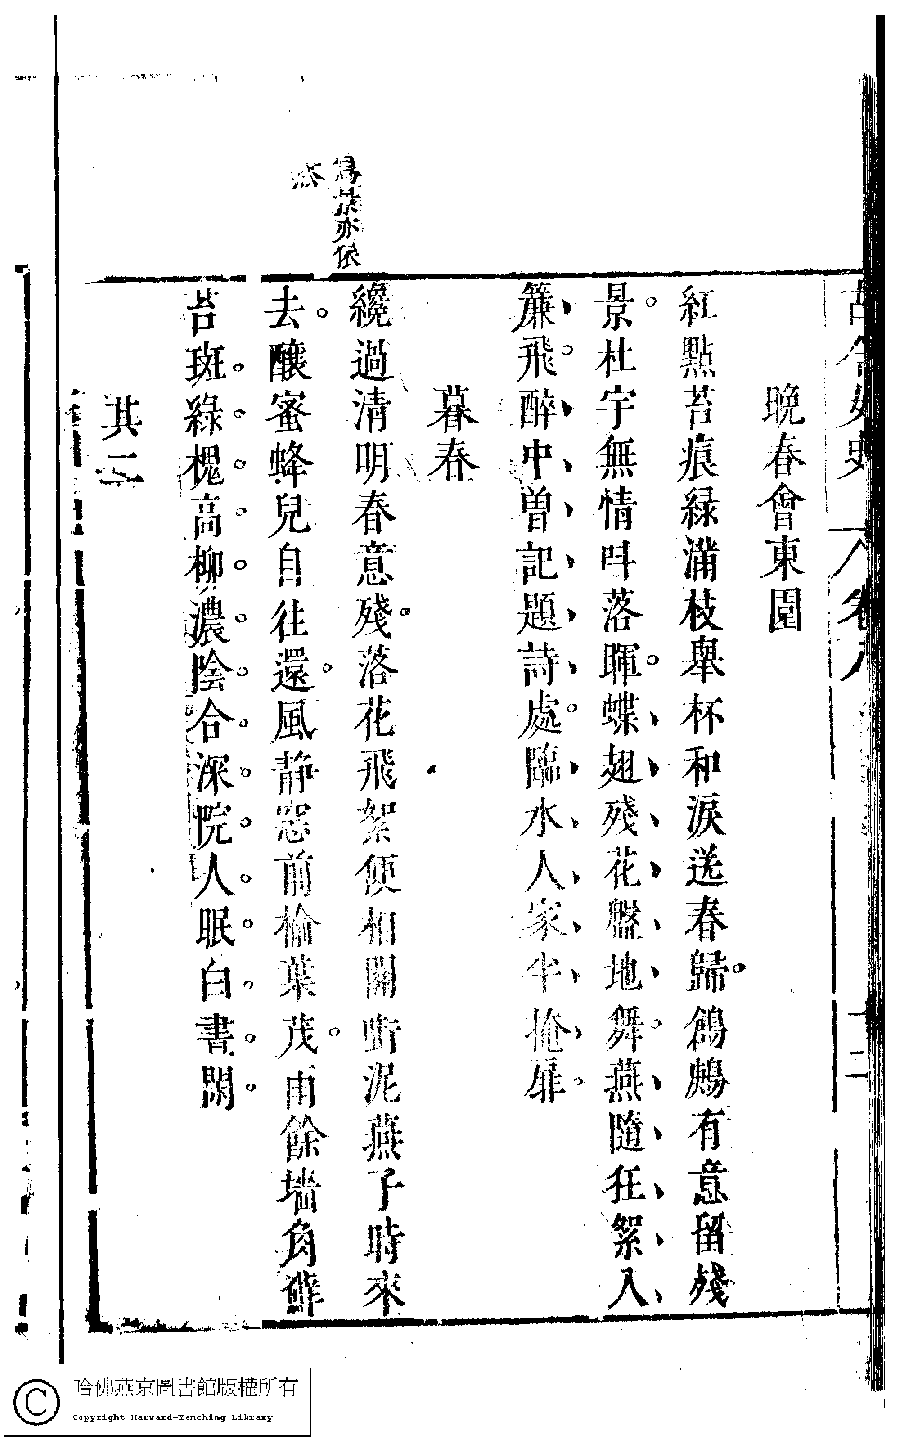 古今女史 卷八
十二
晚春會東園
紅點苔痕綠滿枝舉杯和淚送春歸鶬鶊有意留殘
景杜宇無情呌落暉蝶翅殘花盤地舞燕隨狂絮入
簾飛醉中曽記題詩處臨水人家半掩扉
暮春
纔過清明春意殘落花飛絮便相關啣泥燕子時來
去釀蜜蜂兒自往還風静窓前榆葉茂雨餘墻角蘚
苔斑綠槐高柳濃陰合深院人眠白晝閑
其二
寫景亦依
然
哈佛燕京圖書館版權所有
Copyright Harvard-Yenching Library